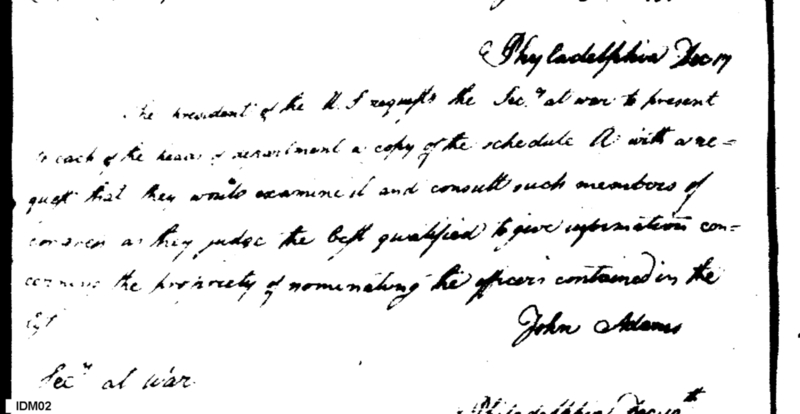 Phyladelphia Dec 17
The president of the U. S requests the Sec.ry at war to present
to each of the heads of department a copy of the schedule A with a re=
quest that they would examine it and consult such members of
congress as they judge the best qualified to give information con=
cerning the propriety of nominating the officers contained in the
John Adams
Sec.ry at War
Philadelphia Dec 19th
IDM02